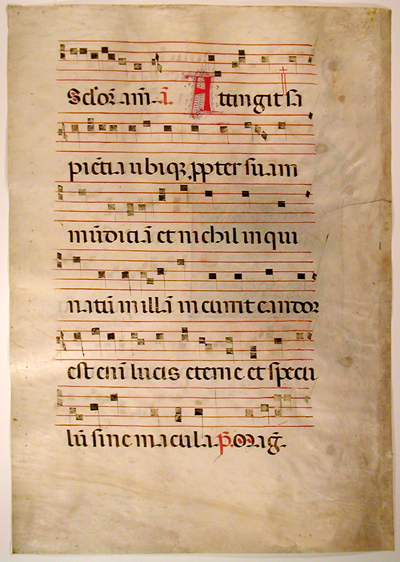 Sclor̄. am̄. a͞. Attingit sa
pie͞tia ubiqꝫ ꝓpter suam
mū̄diciā et nichil inqui
natū in illā incurrit candor
est eni͞ lucis eterne et specu
lū sine macula. p̄. Mag̅.